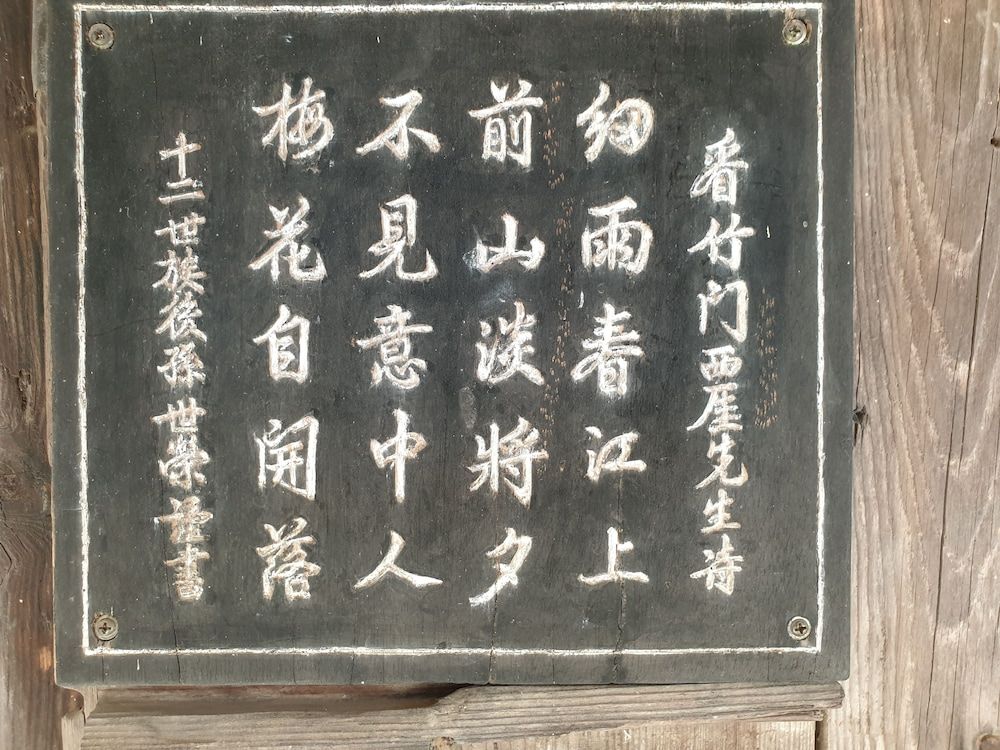 看竹门西厓先生詩
細雨春江上
前山淡將夕
不見意中人
梅花自開落
十二世族後孫世榮謹書